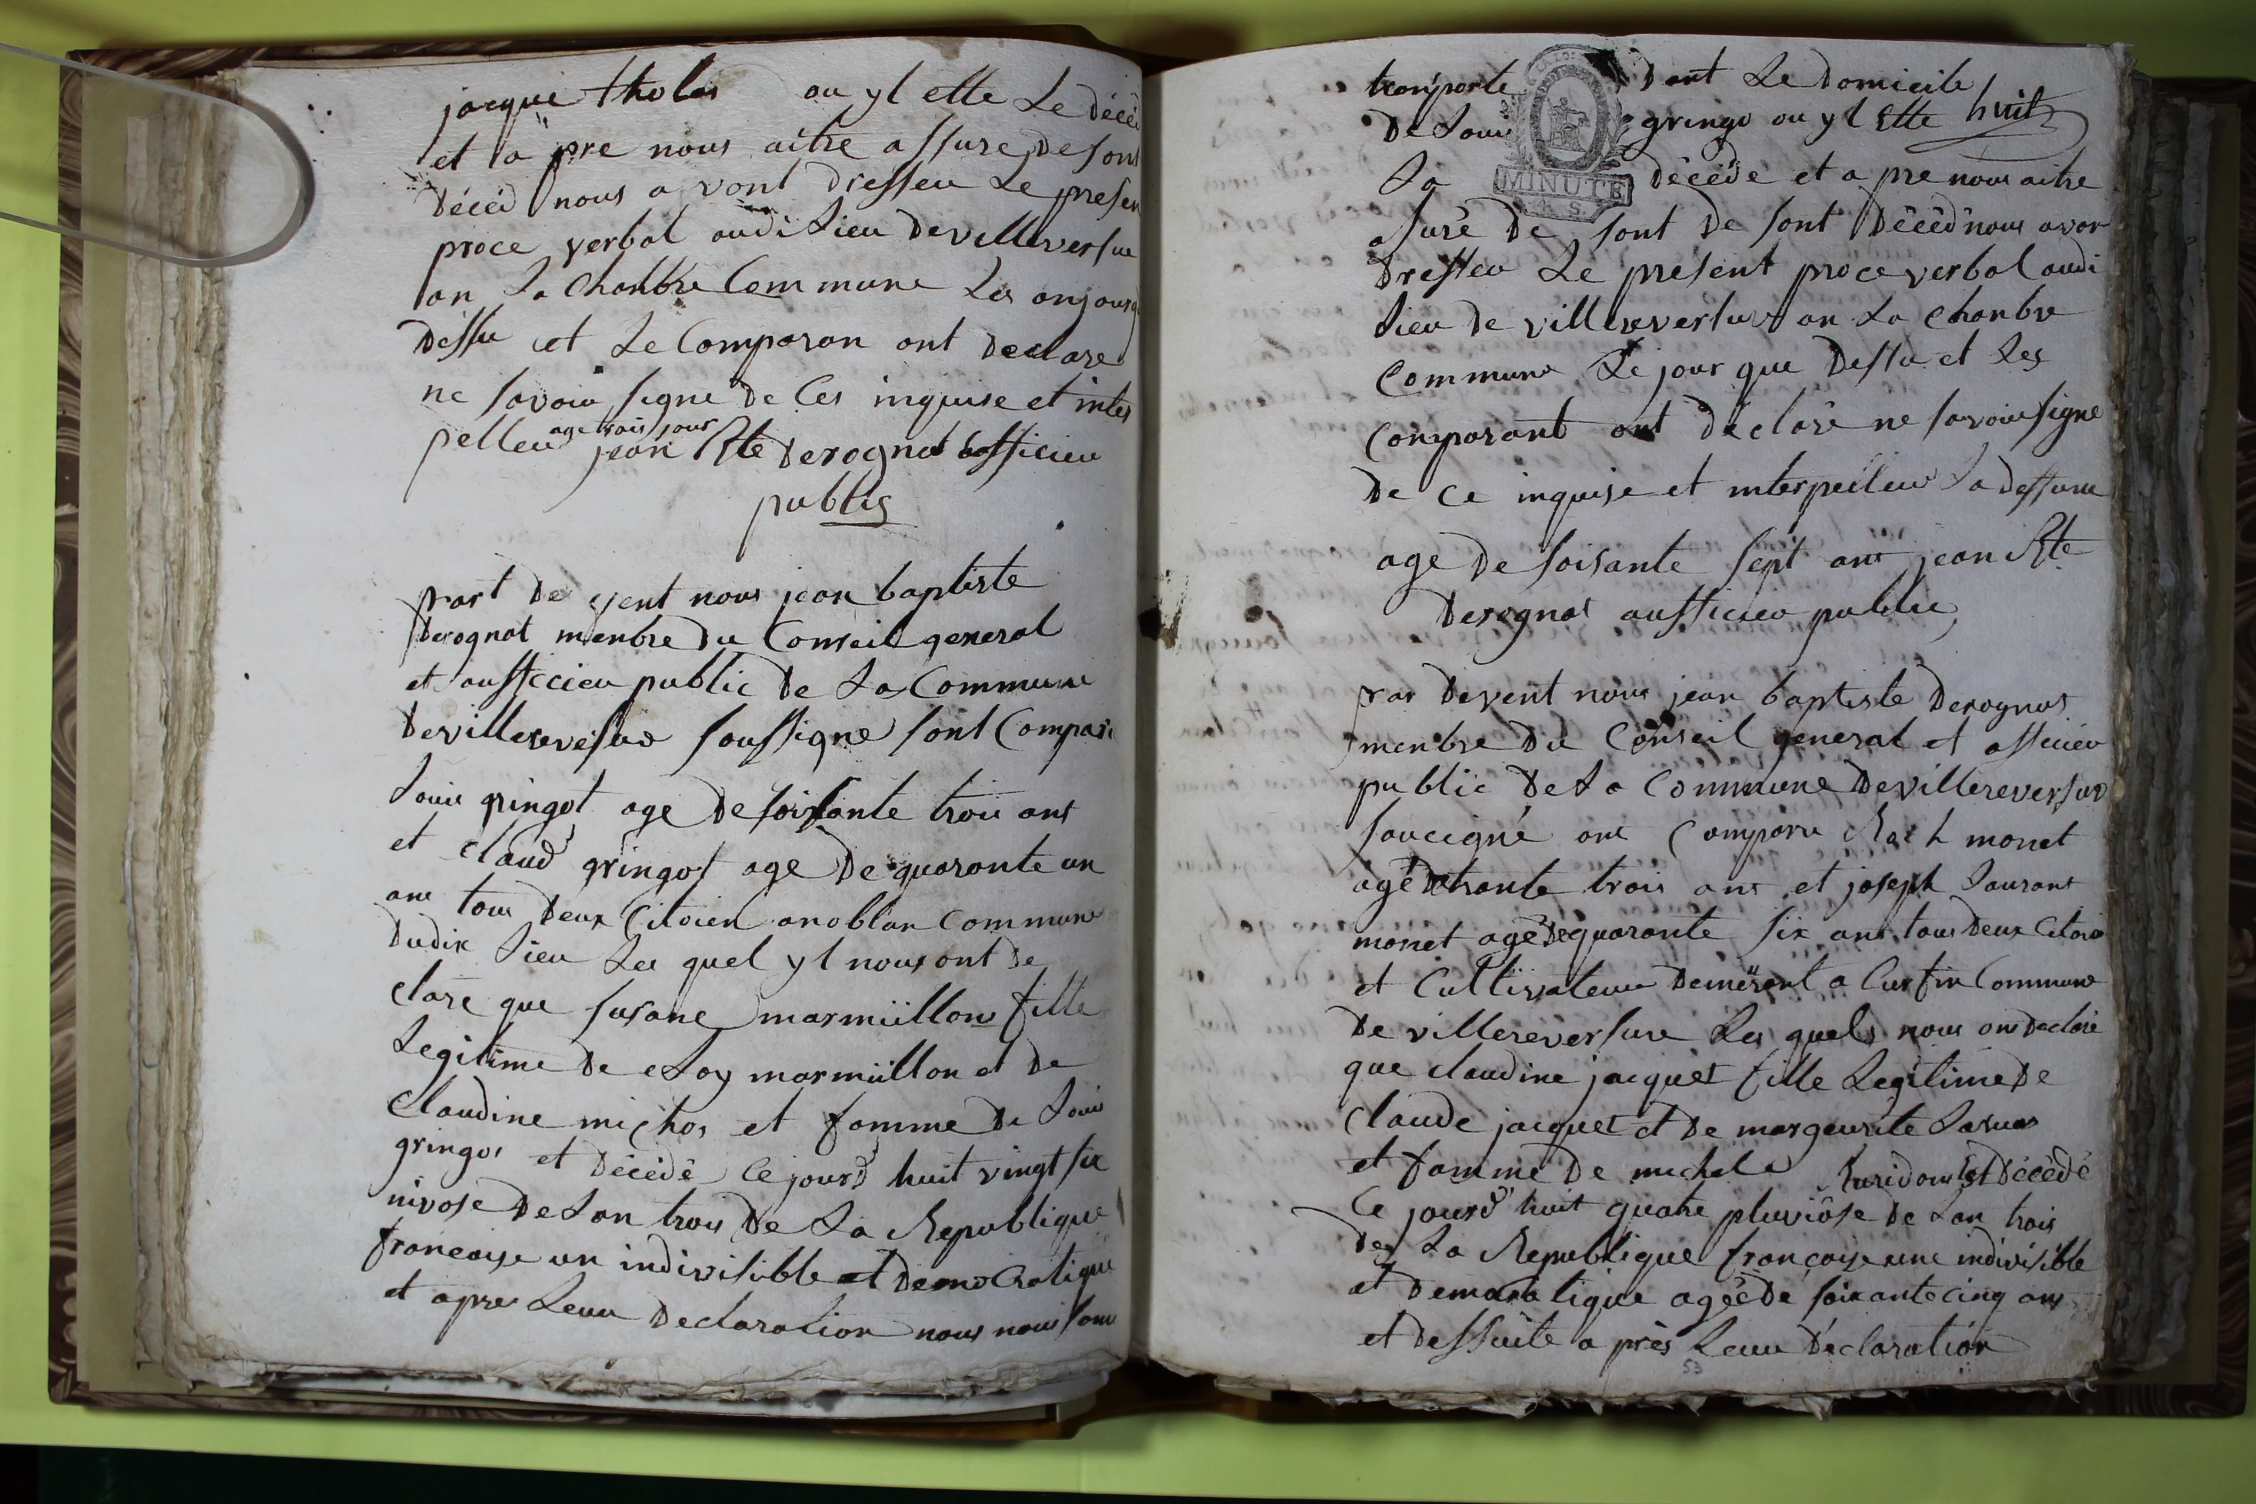 jacque tholas ou yl ette Le décéd
et a pre nous aitre assure de sont
décéd nous a vont dresseu Le presen
proce verbal audi Lieu de villeversue
an La chanbre Commune Les anjour q
dessu et Le Comparan ont declare
ne savoir signe de Ces inquise et inter
age trois jour
pelleu jean Bte derognat officieu
public
part de vent nous jean baptiste
derognat menbre du Conseil general
et aufficieu public de La Commune
de villereversur soussigne sont Compar
Louis gringot age de soissante trois ans
et claud gringot age de quarante un
ans tous deux Citoien a noblan commune
dudix Lieu Les quel yl nous ont de
clare que susane marmüllon fille
Legitime de eloy marmüllon et de
Claudine michos et famme de Louis
gringos et décédé Ce jourd huit vingt six
nivose de Lan trois de La Republique
francaise un indivisible et democratique
et apres Leur declaration nous nous som
transporte dant Le domicile
huit
de Louis gringo ou yl Ette
MINUTE
La décédé et a pre nous aitre
asuré de sont de sont décéd nous avon
dresseu Le present proce verbal audi
Lieu de villereversur an La chanbre
Commune Le jour que dessu et Les
comparant ont déclaré ne savoir signe
de ce inquise et interpelleu La deffune
age de soisante sept ans jean Bte
derognat aufficieu public
par devent nous jean baptiste derognat
menbre du Conseil general et officieu
public de La Commune de villereversur
soucigné ont Comparu monet
agé de trante trois ans et joseph Laurant
monet agé de quarante six ans tous deux Citoien
et Cultivateur demeurant a Curfin Commune
de villereversure Les quels nous ont declaré
que claudine jacquet fille Legitime de
Claude jacquet et de margeurite
et famme de michel décédé
Ce jourd huit quatre pluviôse de Lan trois
de La Republique françaiseune indivisible
et democratique agée de soixante cinq ans
et dessuite a près Leur déclaration
53